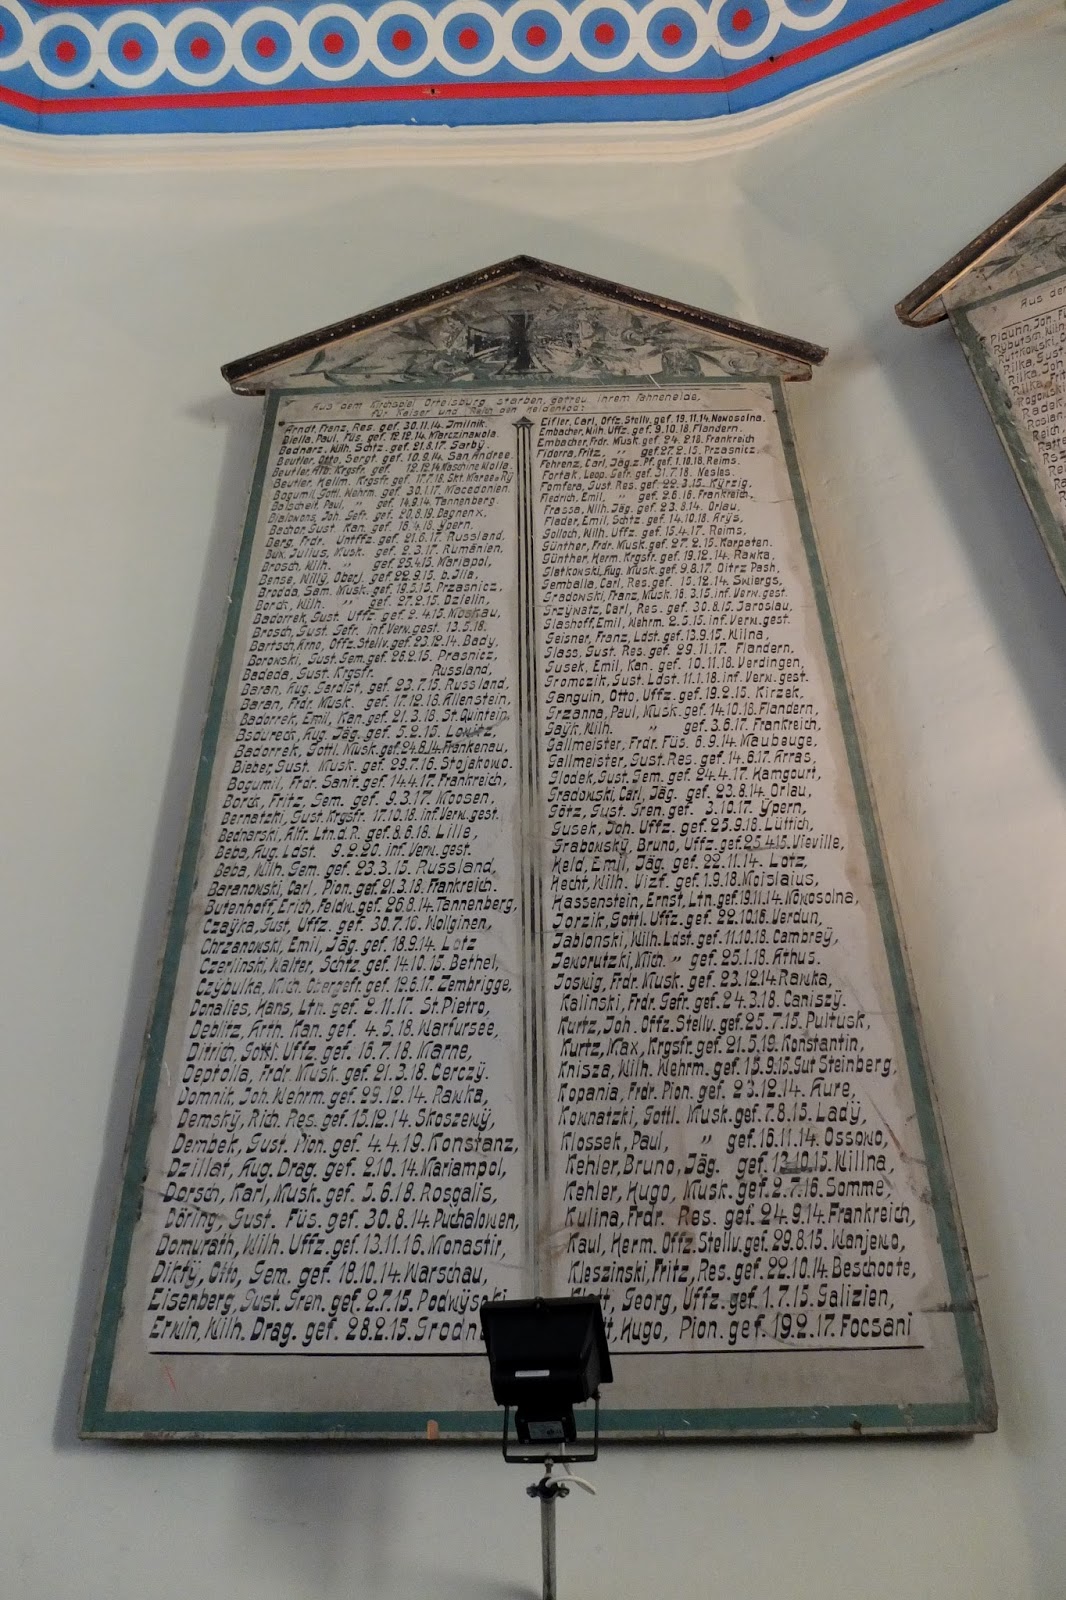 Aus dem Kirchspiel Ortelsburg starben, getreu ihrem Fahneneide,
für Kaiser und Reich den Heldentod:
Arndt, Franz, Res. gef. 30.11.14. Jmilnik.
Biella, Paul, Füs. gef. 12.12.14. Marczinawola.
Bednarz, Wilh. Schtz. gef. 21.8.17. Sarby.
Beutler, Otto, Sergt. gef. 10.9.14. San Andree.
Beutler, Alb. Krgsfr. gef. 12.12.14. Kaschine Wolla.
Beutler, Hellm. Krgsfr. gef. 17.7.18.
Bogumil, Gottl. Wehrm. gef. 30.1.17. Macedonien.
Balscheit, Paul, " gef. 14.9.14. Tannenberg.
Bialowons, Joh. Gefr. gef. 20.8.19. Dagnenx,
Bachor, Gust. Kan. gef. 16.4.18. Ypern,
Berg, Frdr. Untffz. gef. 21.6.17. Russland,
Bux, Julius, Musk. gef. 2.3.17. Rumänien,
Brosch, Wilh. " gef. 25.4.15. Mariapol,
Bense, Willy, Oberj. gef. 22.9.15. b. Jlla,
Brodda, Sam. Musk. gef. 19.5.15. Przasnicz,
Borck, Wilh. " gef. 27.2.15. Dzielin,
Badorrek, Gust. Uffz. gef. 2.4.15. Moskau,
Brosch, Gust. Gefr. inf. Verw. gest. 13.5.18.
Bartsch, Arno, Offz. Stellv. gef. 23.12.14. Bady,
Borowski, Gust. Gem. gef. 26.2.15. Prasnicz,
Badeda, Gust. Krgsfr. Russland,
Baran, Aug. Gardist, gef. 23.7.15. Russland,
Baran, Frdr. Musk. gef. 17.12.18. Allenstein,
Badorrek, Emil, Kan. gef. 21.3.18. St. Quintein,
Bsdureck, Aug. Jäg. gef. 5.2.15. Lowitz,
Badorrek, Gottl. Musk. gef. 24.8.14. Frankenau,
Bieber, Gust. Musk. gef. 29.7.16. Stojakowo.
Bogumil, Frdr. Sanit. gef. 14.4.17. Frankreich,
Borck, Fritz, Gem. gef. 9.3.17. Moosen,
Bernatzki, Gust. Krgsfr. 17.10.18. inf. Verw. gest.
Bednarski, Alfr. Ltn. d. R. gef. 8.6.18. Lille,
Beba, Aug. Ldst. 9.2.20. inf. Verw. gest.
Beba, Wilh. Gem. gef. 23.3.15. Russland,
Baranowski, Carl, Pion. gef. 21.3.18. Frankreich.
Butenhoff, Erich, Feldw. gef. 26.8.14. Tannenberg,
Czayka, Gust, Uffz. gef. 30.7.16. Wollginen,
Chrzanowski, Emil, Jäg. gef. 18.9.14. Lotz
Czerlinski, Walter, Schtz. gef. 14.10.15. Bethel,
Czybulka, Mich. Obergefr. gef. 12.6.17. Zembrigge,
Donalies, Hans, Ltn. gef. 2.11.17. St. Pietro,
Deblitz, Arth. Kan. gef. 4.5.18. Warfursee,
Ditrich, Gottl. Uffz. gef. 16.7.18. Marne,
Deptolla, Frdr. Musk. gef. 21.3.18. Cerczy.
Domnik, Joh. Wehrm. gef. 29.12.14. Rawka,
Demsky, Rich. Res. gef. 15.12.14. Skoszewy,
Dembek, Gust. Pion. gef. 4.4.19. Konstanz,
Dzillat, Aug. Drag. gef. 2.10.14. Mariampol,
Dorsch, Karl, Musk. gef. 5.6.18. Rosgalis,
Döring, Gust. Füs. gef. 30.8.14. Puchalowen,
Domurath, Wilh. Uffz. gef. 13.11.16. Monastir,
Dikty, Otto, Gem. gef. 18.10.14. Warschau,
Eisenberg, Gust. Gren. gef. 2.7.15.
Erwin, Wilh. Drag. gef. 28.2.15.
Eifler, Carl, Offz. Stellv. gef. 19.11.14. Nowosolna.
Embacher, Wilh. Uffz. gef. 9.10.18. Flandern.
Embacher, Frdr. Musk. gef. 24.2.18. Frankreich
Fidorra, Fritz, " gef. 27.2.15. Przasnicz.
Fehrenz, Carl, Jäg. z. Pf. gef. 1.10.18. Reims.
Fortak, Leop. Gefr. gef. 31.7.18. Nesles.
Fomfera, Gust. Res. gef. 22.3.15. Kyrzig.
Fiedrich, Emil, " gef. 2.6.18. Frankreich.
Frassa, Wilh. Jäg. gef. 23.8.14. Orlau,
Flader, Emil, Schtz. gef. 14.10.18. Arys,
Golloch, Wilh. Uffz. gef. 15.4.17. Reims,
Günther, Frdr. Musk. gef. 27.2.15. Karpaten.
Günther, Herm. Krgsfr. gef. 19.12.14. Rawka,
Glatkowski, Aug. Musk. gef. 9.8.17. Oitrz Pash,
Gemballa, Carl, Res. gef. 15.12.14. Swiergs,
Gradowski, Franz, Musk. 18.3.15. inf. Verw. gest.
Grzywatz, Carl, Res. gef. 30.8.15. Jaroslau,
Glashoff, Emil, Wehrm. 2.5.15. inf. Verw. gest.
Geisner, Franz, Ldst. gef. 13.9.15. Wilna,
Glass, Gust. Res. gef. 29.11.17. Flandern.
Gusek, Emil, Kan. gef. 10.11.18. Verdingen,
Gromczik, Gust. Ldst. 11.1.18. inf. Verw. gest.
Ganguin, Otto, Uffz. gef. 19.2.15. Kirzek,
Grzanna, Paul, Musk. gef. 14.10.18. Flandern,
Gayk, Wilh. " gef. 3.6.17. Frankreich,
Gallmeister, Frdr. Füs. 6.9.14. Maubeuge,
Gallmeister, Gust. Res. gef. 14.6.17. Arras,
Glodek, Gust. Gem. gef. 24.4.17. Hamgourt,
Gradowski, Carl, Jäg. gef. 23.8.14. Orlau,
Götz, Gust. Gren. gef. 3.10.17. Ypern,
Gusek, Joh. Uffz. gef. 25.9.18. Lüttich,
Grabowsky, Bruno, Uffz. gef. 25.4.15. Vieville,
Held, Emil, Jäg. gef. 22.11.14. Lotz,
Hecht, Wilh. Vizf. gef. 1.9.18. Moislaius,
Hassenstein, Ernst, Ltn. gef. 19.11.14. Nowosolna,
Jorzik, Gottl. Uffz. gef. 22.10.16. Verdun,
Jablonski, Wilh. Ldst. gef. 11.10.18. Cambrey,
Jeworutzki, Mich. " gef. 25.1.18. Athus.
Joswig, Frdr. Musk. gef. 23.12.14 Rawka,
Kalinski, Frdr. Gefr. gef. 24.3.18. Caniszy.
Kurtz, Joh. Offz. Stellv. gef. 25.7.15. Pultusk,
Kurtz, Max, Krgsfr. gef. 21.5.19. Konstantin,
Knisza, Wilh. Wehrm. gef. 15.9.15. Gut Steinberg,
Kopania, Frdr. Pion. gef. 23.12.14. Aure,
Kownatzki, Gottl. Musk. gef. 7.8.15. Lady,
Klossek, Paul, " gef. 16.11.14. Ossowo,
Kehler, Bruno, Jäg. gef. 13.10.15. Willna,
Kehler, Hugo, Musk. gef. 2.7.16. Somme,
Kulina, Frdr. Res. gef. 24.9.14. Frankreich,
Kaul, Herm. Offz. Stellv. gef. 29.8.15. Wanjewo,
Kleszinski, Fritz, Res. gef. 22.10.14. Beschoote,
Georg, Uffz. gef. 1.7.15. Galizien,
Hugo, Pion. gef. 19.2.17. Focsani
Aus
Joh.
Rybutsch, Wilh
Ruttkowski,
Rilka, Gust
Rilka, Joh
Rilka,
Rogowski
Radek
Roslan
Reich